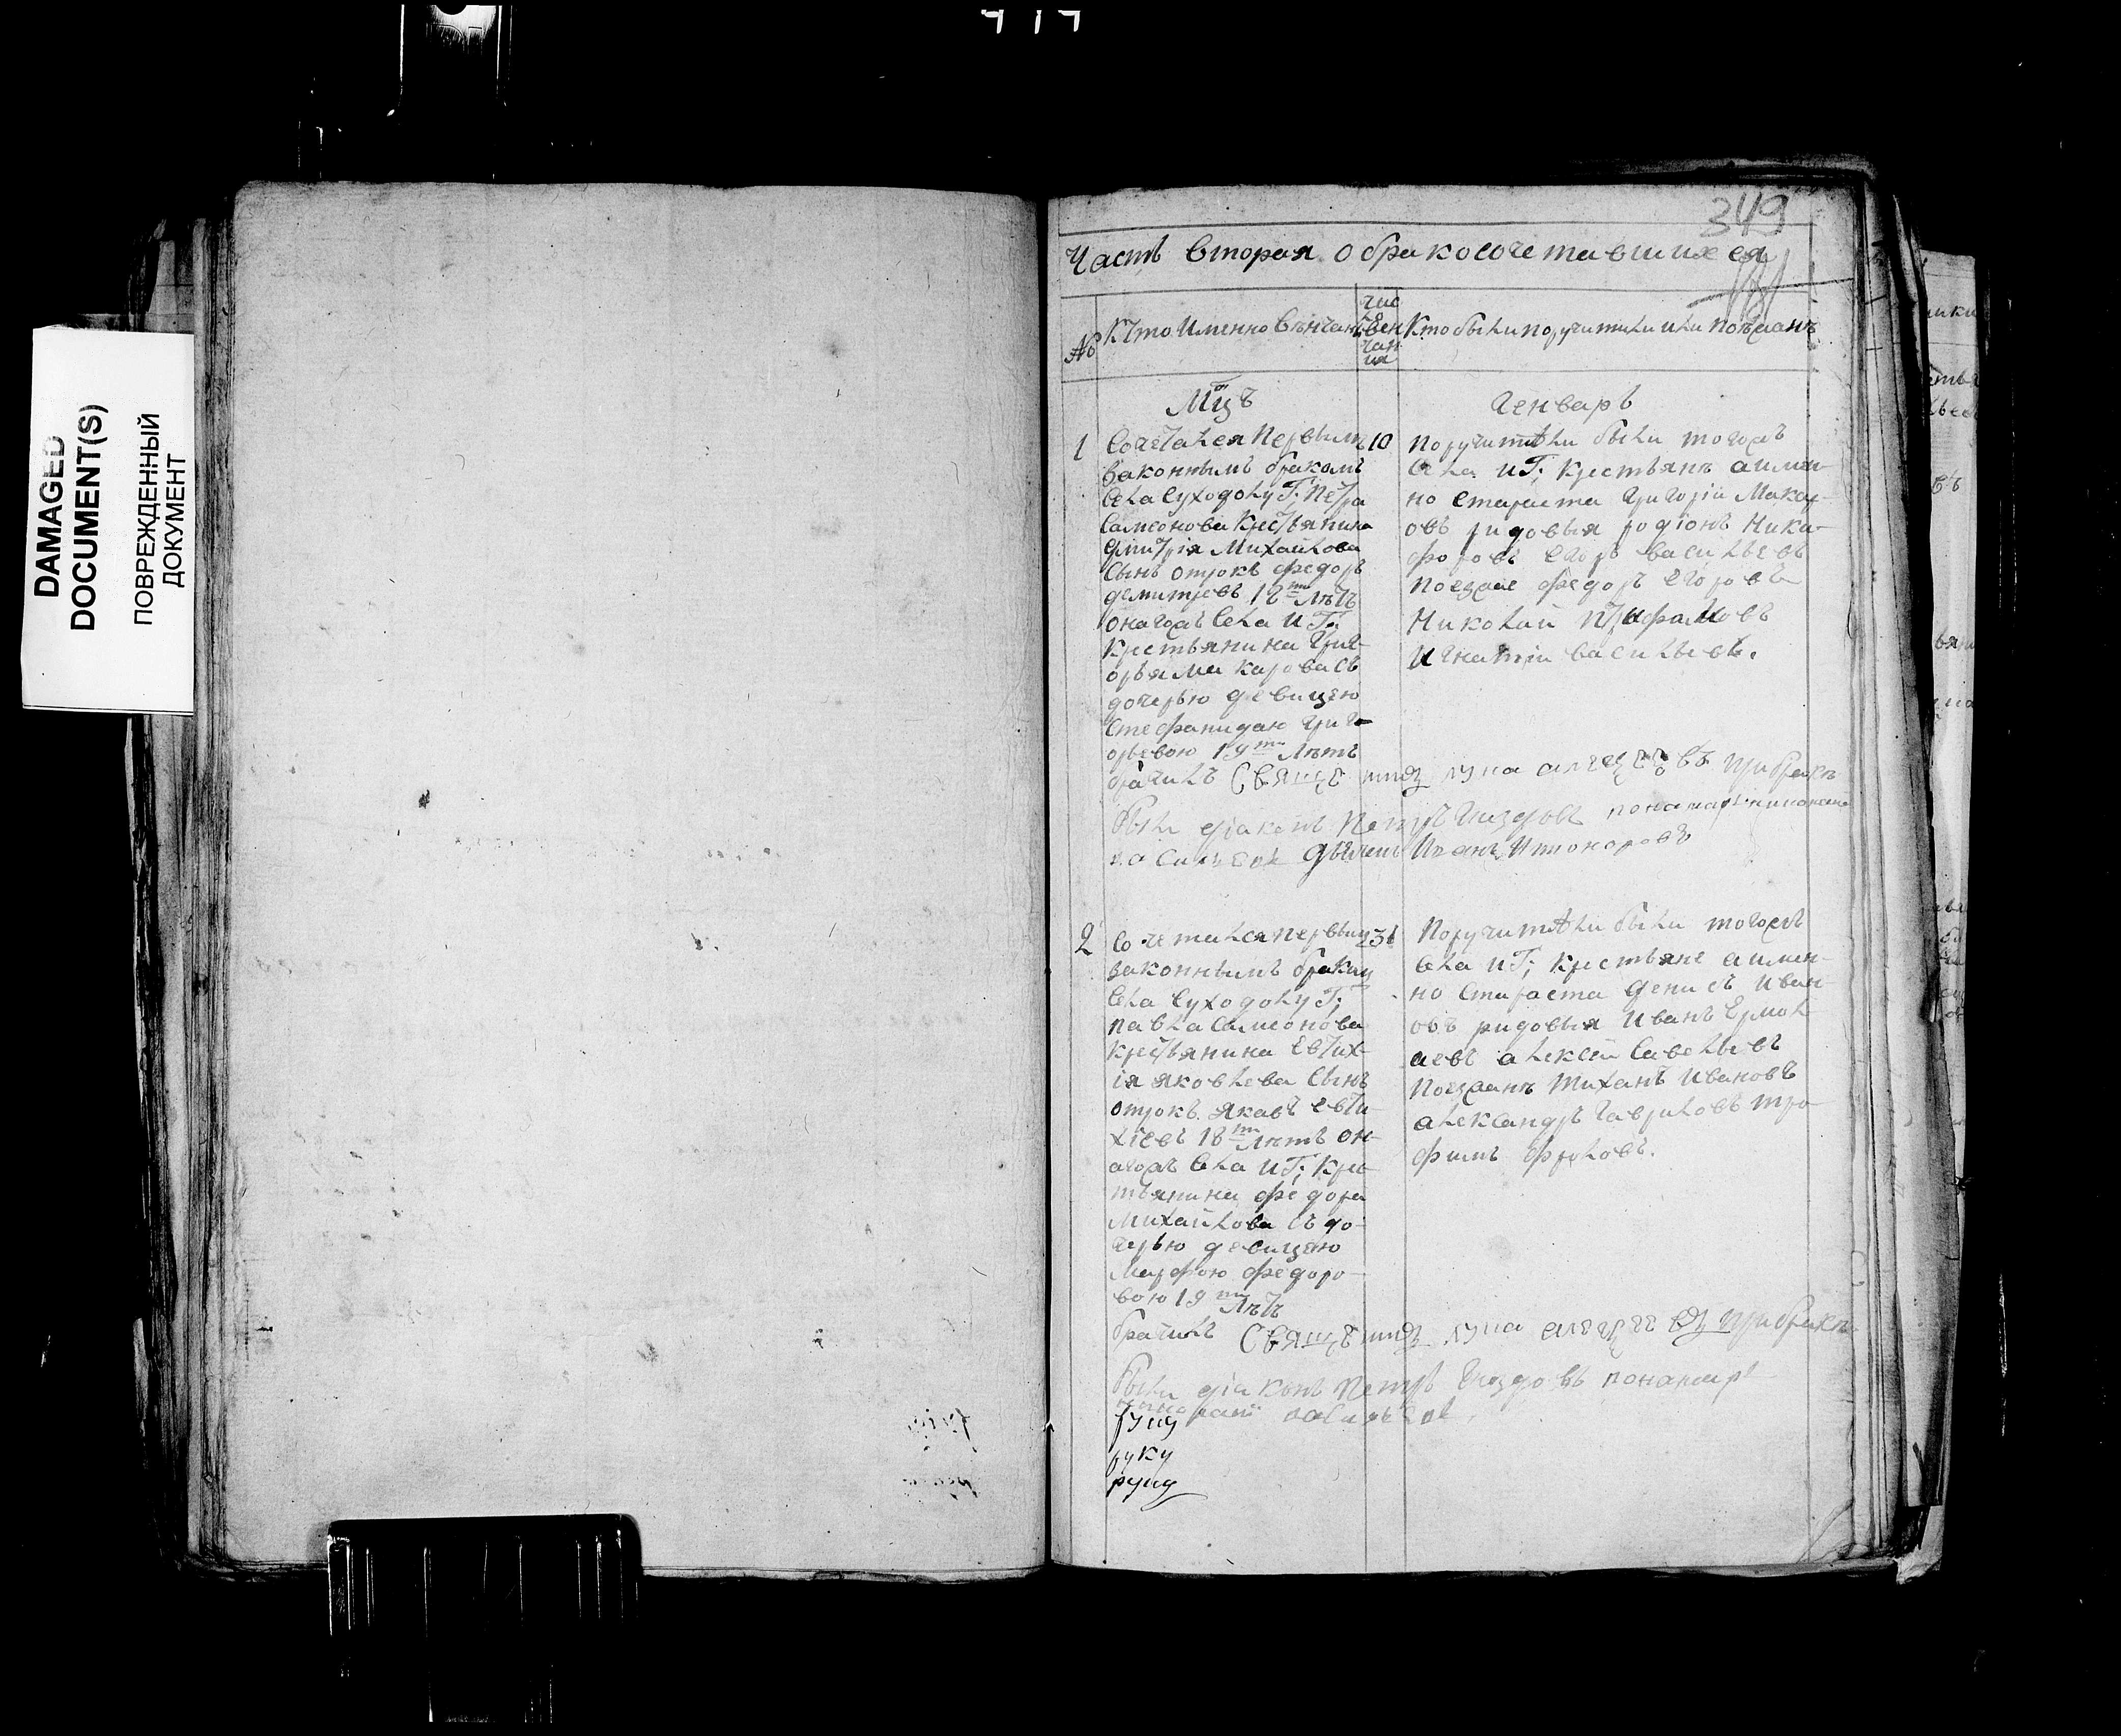 DAMAGED
DOCUMENT(S)
ПОВРЕЖДЕННЫЙ
ДОКУМЕНТ
349
Часть вторая о бракосочетавшихся
№
Кто именно венчан
чис
ло
вен
чан
ия
Кто были поручители или поезжанъ
Мцъ
Генварь
1
Сочетался первымъ
законнымъ бракомъ
села Суходолу Г: Петра
Самсонова крестьянина
Дмитрія Михайлова
сынъ отрокъ Федоръ
Демитревъ 18 ти летъ
оногожъ села и Г:
крестьянина Григ-
орья Макарова съ
дочерью девицею
Стефанидаю Григо-
рьевою 19 ти летъ
10
Поручители были тогожъ
села и Г: крестьянъ а имен-
но староста Григорій Макар-
овъ рядовыя Родіонъ Ники-
форовъ Егоръ Васильевъ
поезжае Федоръ Егоровъ
Николай
Игнатій Васильевъ.
брачилъ Священникъ Лука Алексеевъ при браке
были діаконъ Петръ Гнездовъ понамарь
Васильевъ дьячекъ Иванъ
2
Сочетался первым
законнымъ браком
села Суходолу Г:
Павла Самсонова
крестьянина Евтих-
ія Яковлева сынъ
отрокъ Яковъ Евти-
хіевъ 18 ти летъ он-
агожъ села и Г: крес-
тьянина Федора
Михайлова съ до-
черью девицею
Марфою Федоро-
вою 19 ти летъ
31
Поручители были тогожъ
села и Г: крестьяне а имен-
но староста Денисъ Иван-
овъ рядовыя Иванъ Ермол-
аевъ Алексей Савельевъ
поезжанъ Тиханъ Ивановъ
Александръ Гавриловъ Тро-
фимъ Фроловъ.
брачилъ Священникъ Лука Алексеевъ при браке
были діаконъ Петръ Гнездовъ понамарь
Васильевъ
руку